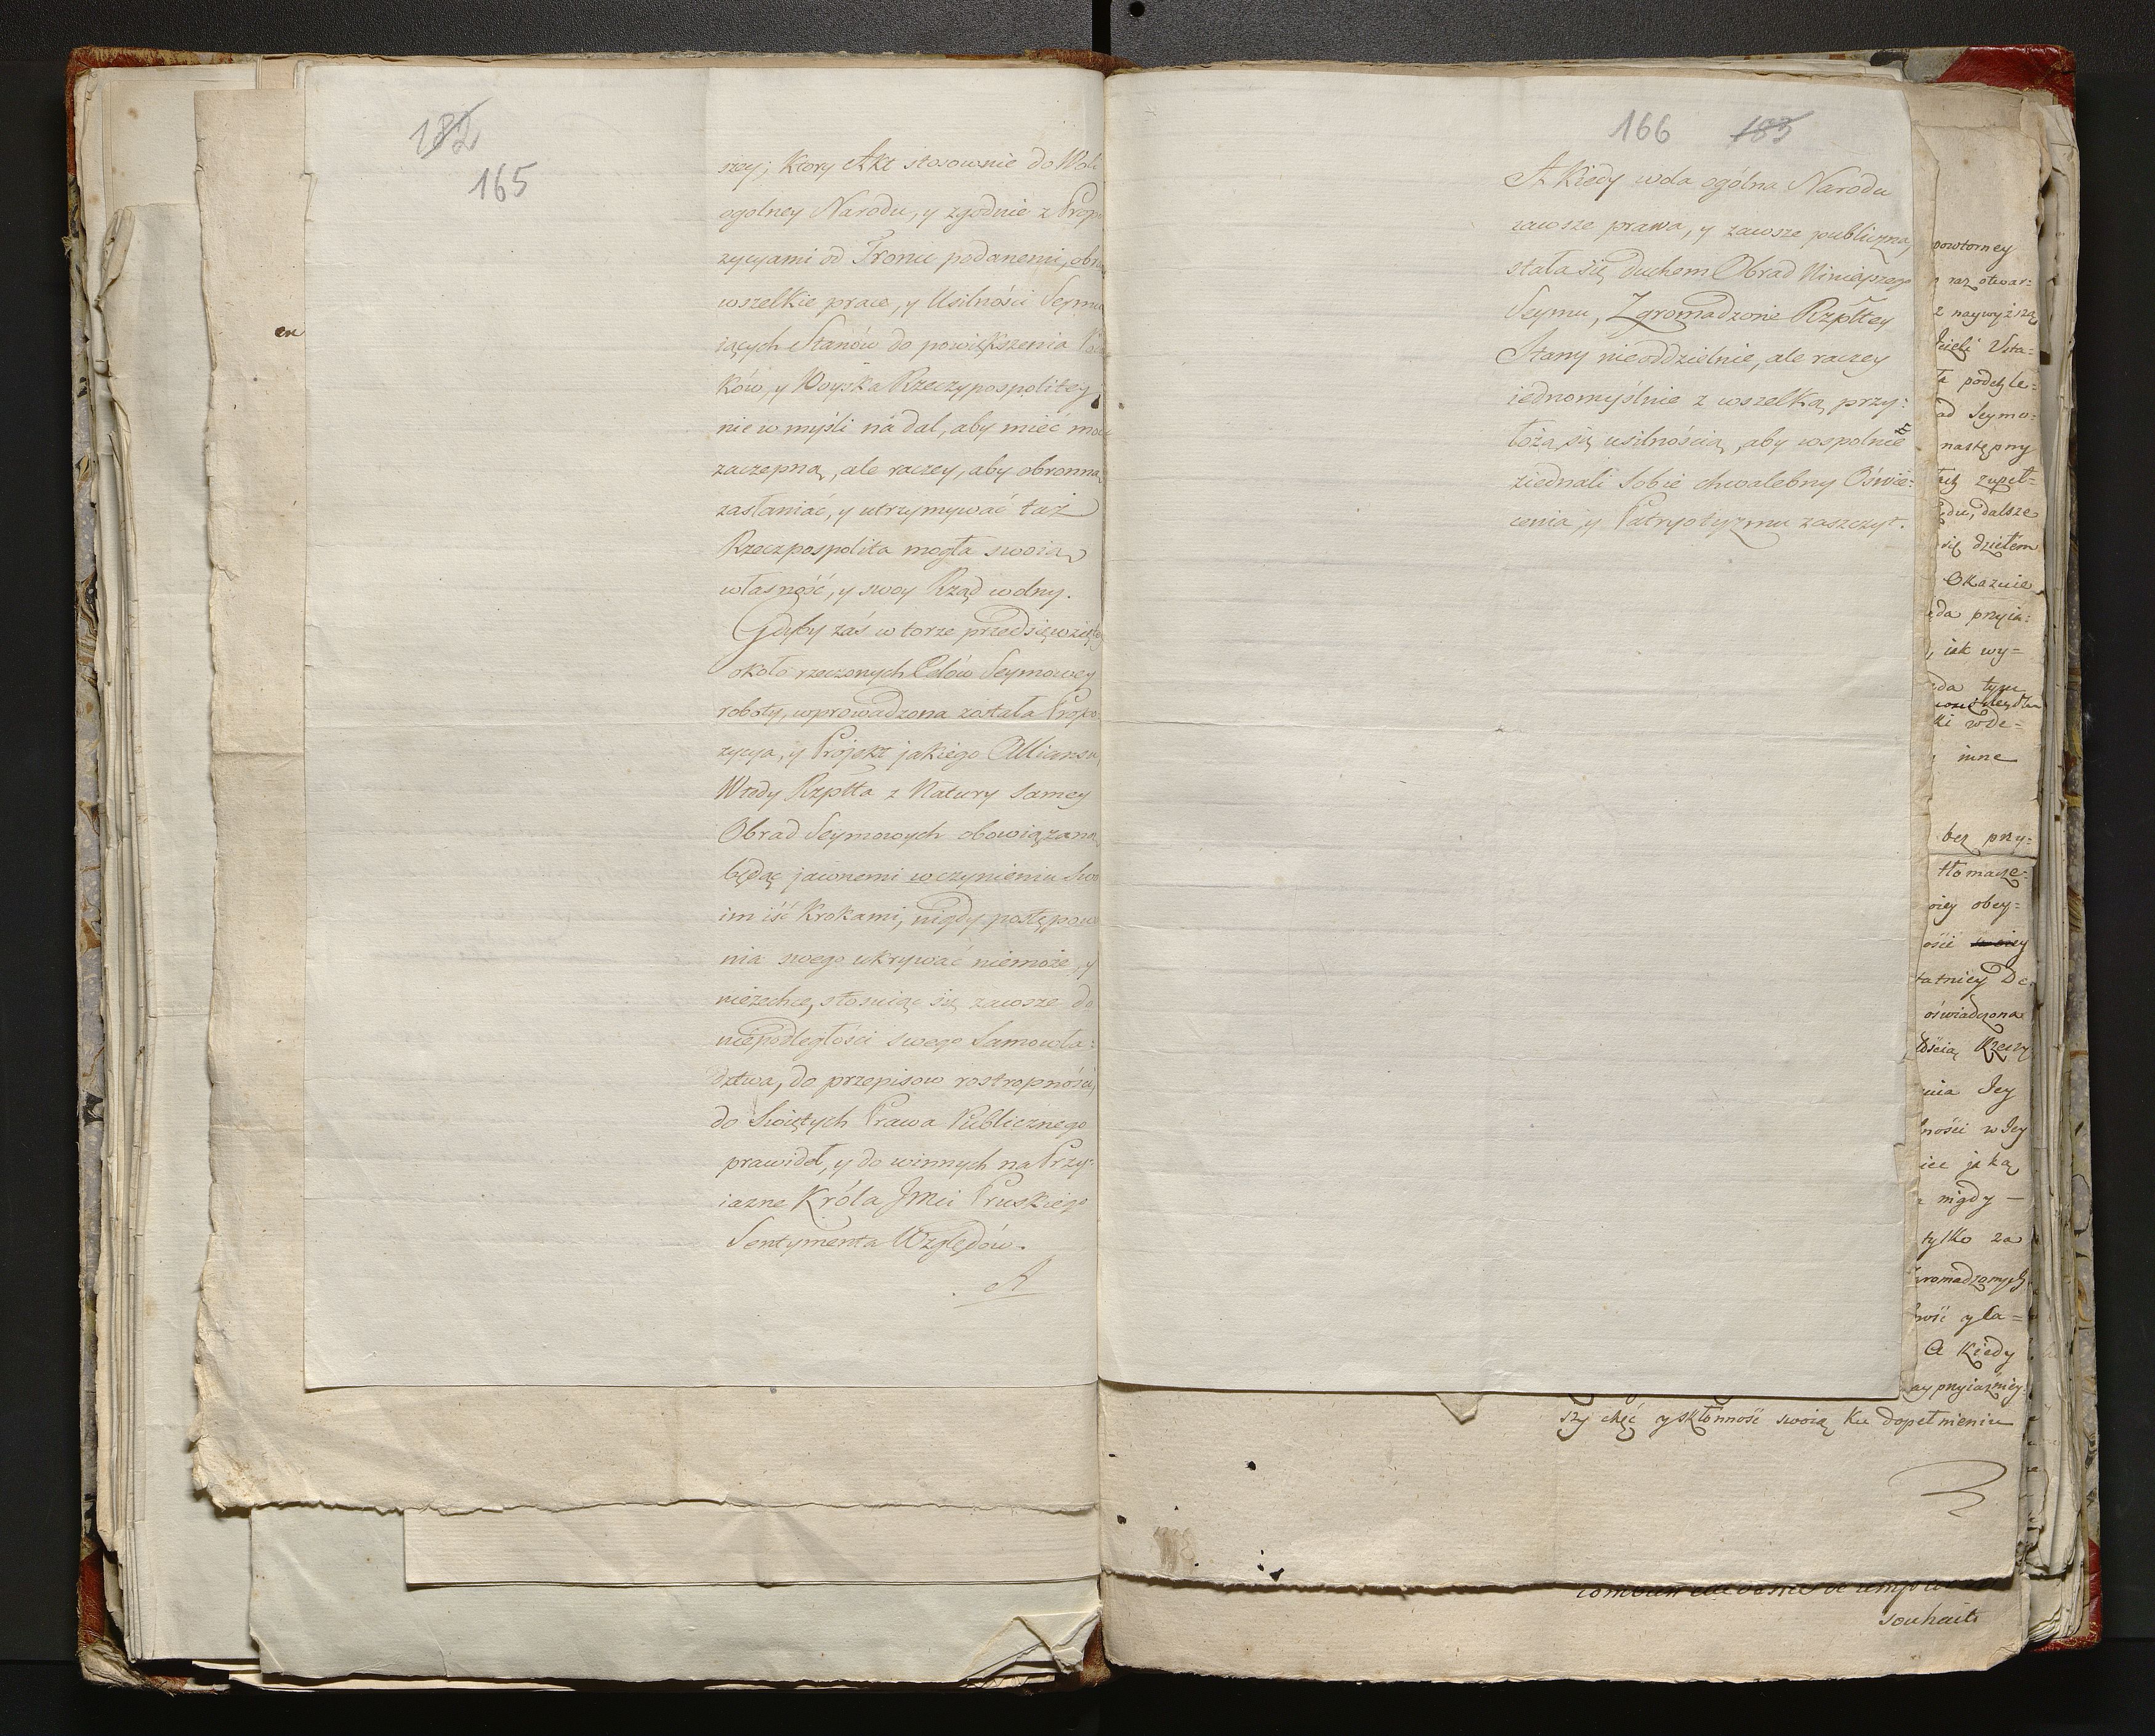 182
165
szey; ktory Akt stosownie do Woli
ogolney Narodu, y zgodnie z Propo
zycyami od Tronu podanemi, obra
wszelkie prace, y Usilności Seymu
iących Stanów do powiększenia
ków, y Woyska Rzeczypospolitey
nie w myśli nádal, aby mieć moc
zaczepną, ale raczey, aby obronną
zasłaniáć, y utrzymywać taż
Rzeczpospolita mogła swoią
własność, y swoy Rząd wolny.
Gdyby záś w torze przedsięwzięte
około rzeczonych Celów Seymowey
roboty, wprowadzona została Propo
zycya, y Projekt jakiego Alliansu,
Wtedy Rzpltta z Natury samey
Obrad Seymowych obowiązana
będąc jawnemi w czynieniu Swo
im iść Krokami, nigdy postępowa
nia swego ukrywać niemoże, y
niezechce, stosuiąc się zawsze do
niepodległości swego Samowła:
dztwa, do przepisow rostropności,
do Swiętych Prawa Publicznego
prawideł, y do winnych na Przy:
iazne Króla Jmci Pruskiego
Sentymenta Względów.
A
166 183
A Kiedy wola ogólna Narodu
zawsze prawa, y zawsze publiczna,
stała się Duchem Obrad Ninieyszego
Seymu, Zgromadzone Rzpltey
Stany nieoddzielnie, ale raczey
iednomyślnie z wszelką przy:
łożą się usilnością, aby wspolnie
ziednali Sobie chwalebny Oświe:
cenia, y Patryotyzmu zaszczyt.
powtorney
raz otwar=
z naywyższą
Usta=
Seymo=
następny
zupeł=
dalsze
się dziełem
Okazuie
przyia:
iak wy=
tym
wde=
inne
bez przy=
tłomacze=
obey=
ości swoiey
De=
oświadczona
Rzeczy
nia Jey
w Jey
jaką
nigdy —
tylko za
A Kiedy
szy chęć y skłonność swoią ku dopełnieniu
souhait